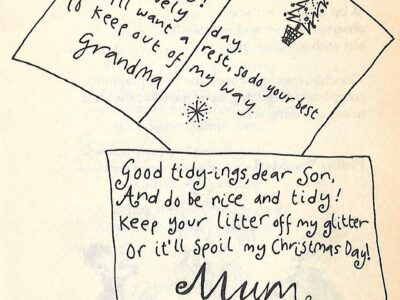 vely
'll want a day.
To keep out of rest, so do your best
Grandma my way.
Good tidy-ings, dear Son,
And do be nice and tidy!
Keep your litter off my glitter
Or it'll spoil my Christmas Day!
Mum.